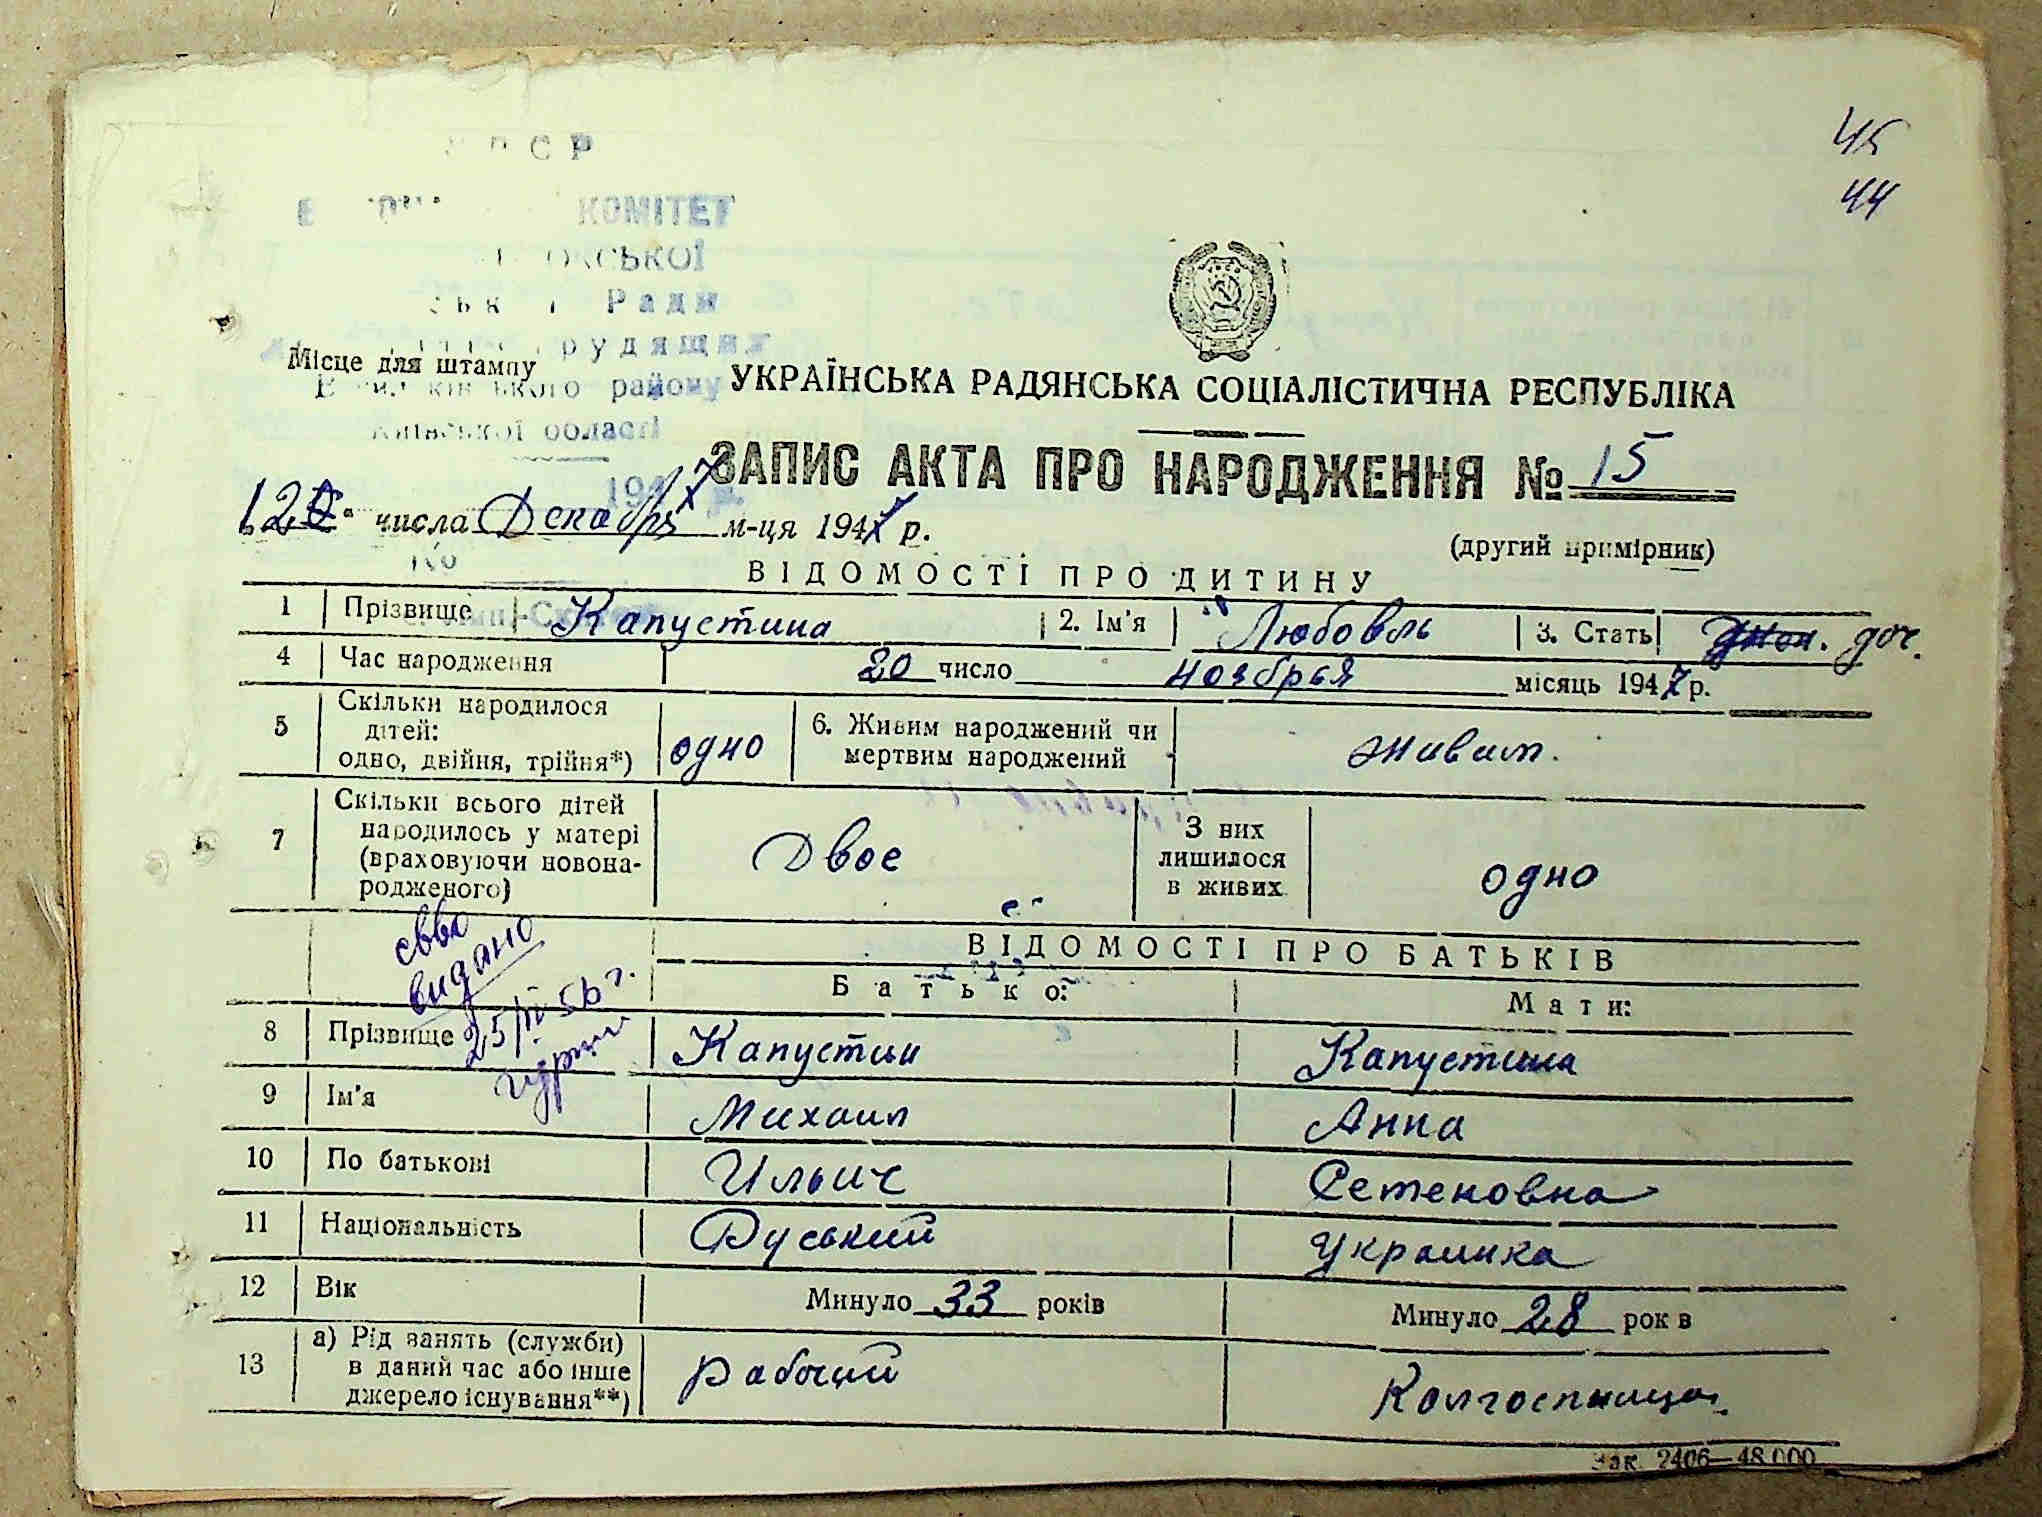 45
44
КОМІТЕТ
Ради
району
Місце для штампу
Київської області
УКРАЇНСЬКА РАДЯНСЬКА СОЦІАЛІСТИЧНА РЕСПУБЛІКА
ЗАПИС АКТА ПРО НАРОДЖЕННЯ № 15
12 числа Декабря м-ця 1947 р.
(другий примірник)
ВІДОМОСТІ ПРО ДИТИНУ
1 Прізвище Капустина 2. Ім'я Любовль 3. Стать доч.
4 Час народження 20 число ноября місяць 1947 р.
5 Скільки народилося дітей: одно, двійня, трійня*) одно 6. Живим народжений чи мертвим народжений живим.
7 Скільки всього дітей народилось у матері (враховуючи новонародженого) Двое З них лишилося в живих одно
ВІДОМОСТІ ПРО БАТЬКІВ
Батько: Мати:
свво
видано
25/IV 56 г.
8 Прізвище Капустин Капустина
9 Ім'я Михаил Анна
10 По батькові Ильич Семеновна
11 Національність Руський Украинка
12 Вік Минуло 33 років Минуло 28 рок в
13 а) Рід занять (служби) в даний час або інше джерело існування**) рабочий Колгоспница
Зак. 2406—48.000